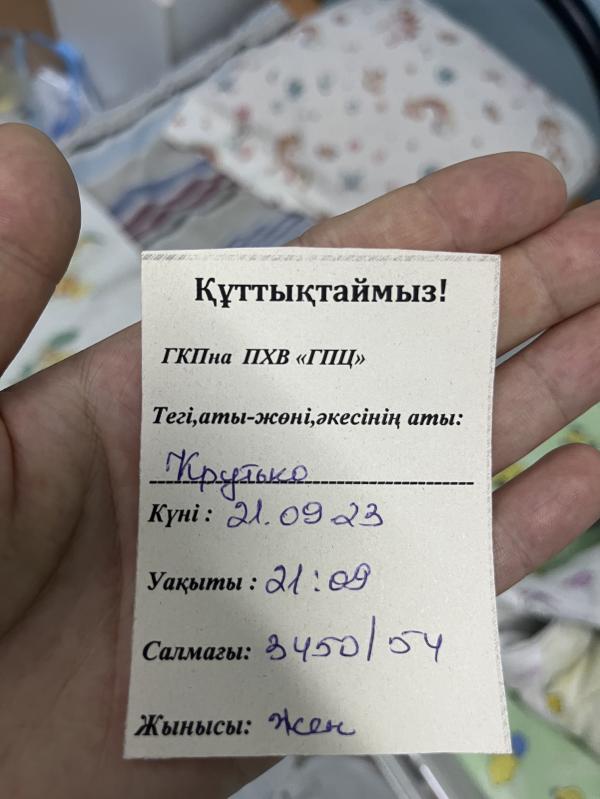 Құттықтаймыз!
ГКПна ПХВ «ГПЦ»
Тегі,аты-жөні,әкесінің аты:
Крутько
Күні : 21.09 23
Уақыты : 21:09
Салмағы: 3450/54
Жынысы: жен